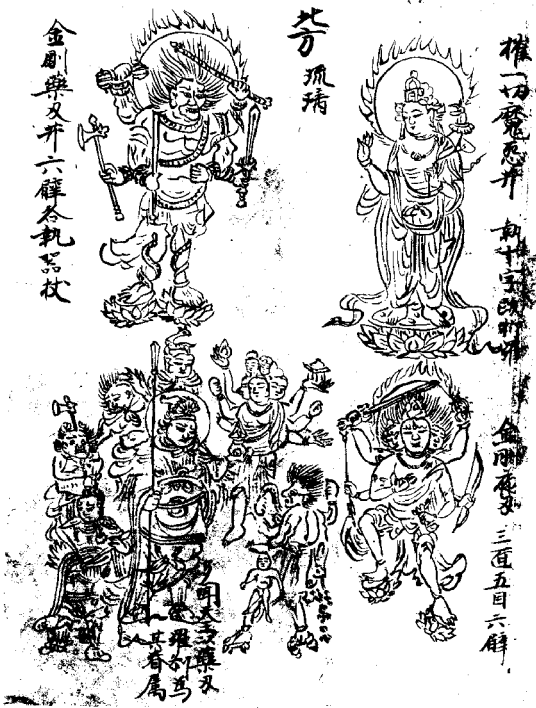 摧一切魔怨井 執十字跋折羅
金剛夜叉 三面五目六臂
北方
琉璃
金剛藥叉井六臂各執器杖
天王藥叉
羅刹為
其眷属